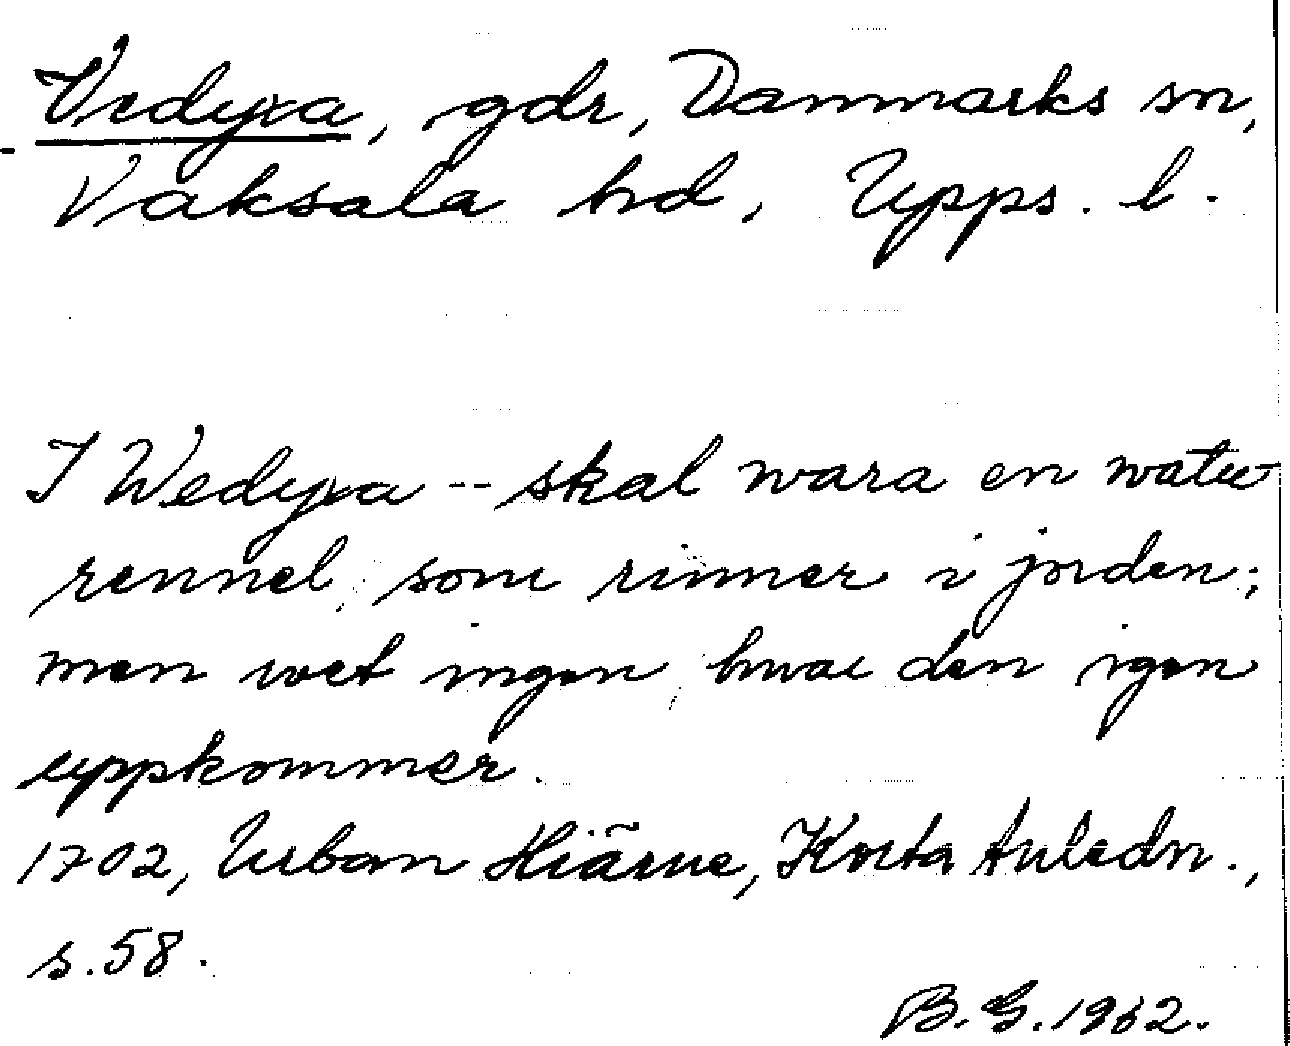 Vedyxa, gdr, Danmarks sn,
Vaksala hd, Upps. l.
I Wedyxa -- skal wara en watu-
rennel, som rinner i jorden;
men wet ingen hwar den igen
uppkommer.
1702, Urban Hiärne, Korta Anledn.,
s. 58.
B. G. 1962.